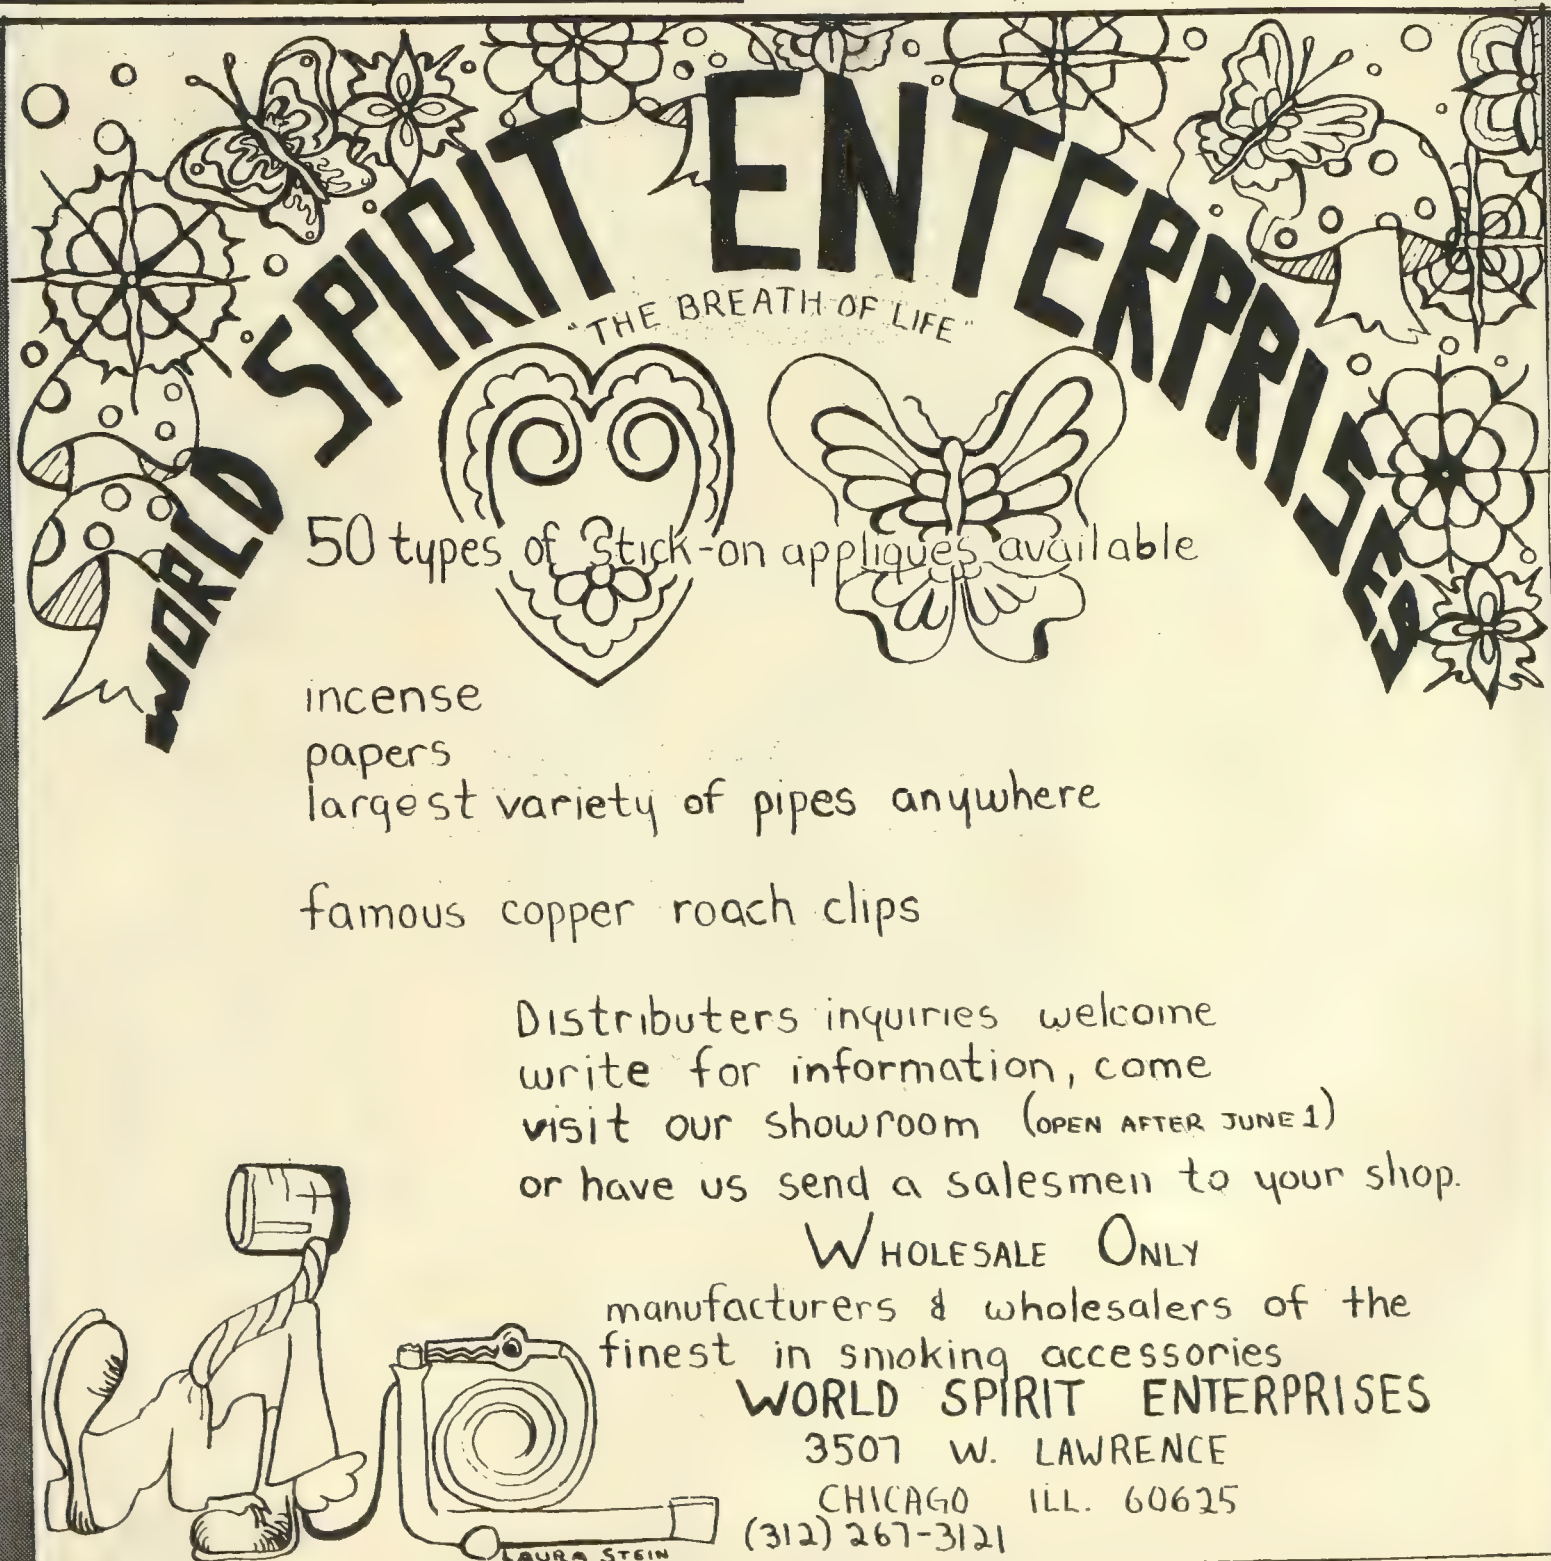 WORLD SPIRIT ENTERPRISES
"THE BREATH OF LIFE"
50 types of Stick-on appliques available
incense
papers
largest variety of pipes anywhere
famous copper roach clips
Distributers inquiries welcome
write for information, come
visit our showroom (OPEN AFTER JUNE 1)
or have us send a salesmen to your shop.
WHOLESALE ONLY
manufacturers & wholesalers of the
finest in smoking accessories
WORLD SPIRIT ENTERPRISES
3507 W. LAWRENCE
CHICAGO ILL. 60625
(312) 267-3121
LAURA STEIN